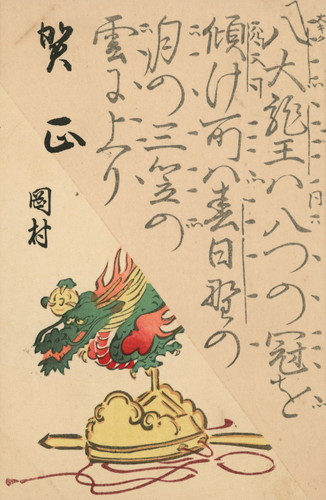 八大龍王ハ八つの冠を
傾け所ハ春日野の
月の三笠の
雲に上り
賀正
岡村